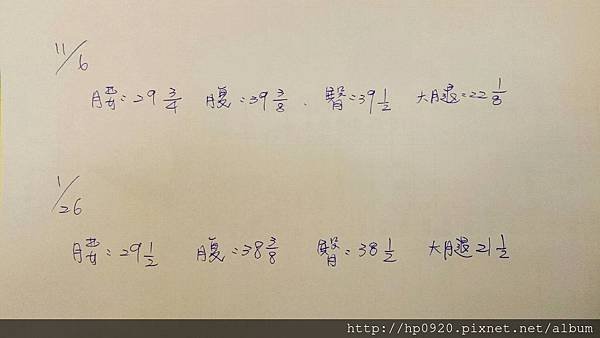 11/6
腰:29 3/4 腹:39 3/8 . 臀=39 1/2 大腿=22 1/8
1/26
腰:29 1/2 腹=38 3/8 臀=38 1/2 大腿21 1/2
http://hp0920.pixnet.net/album